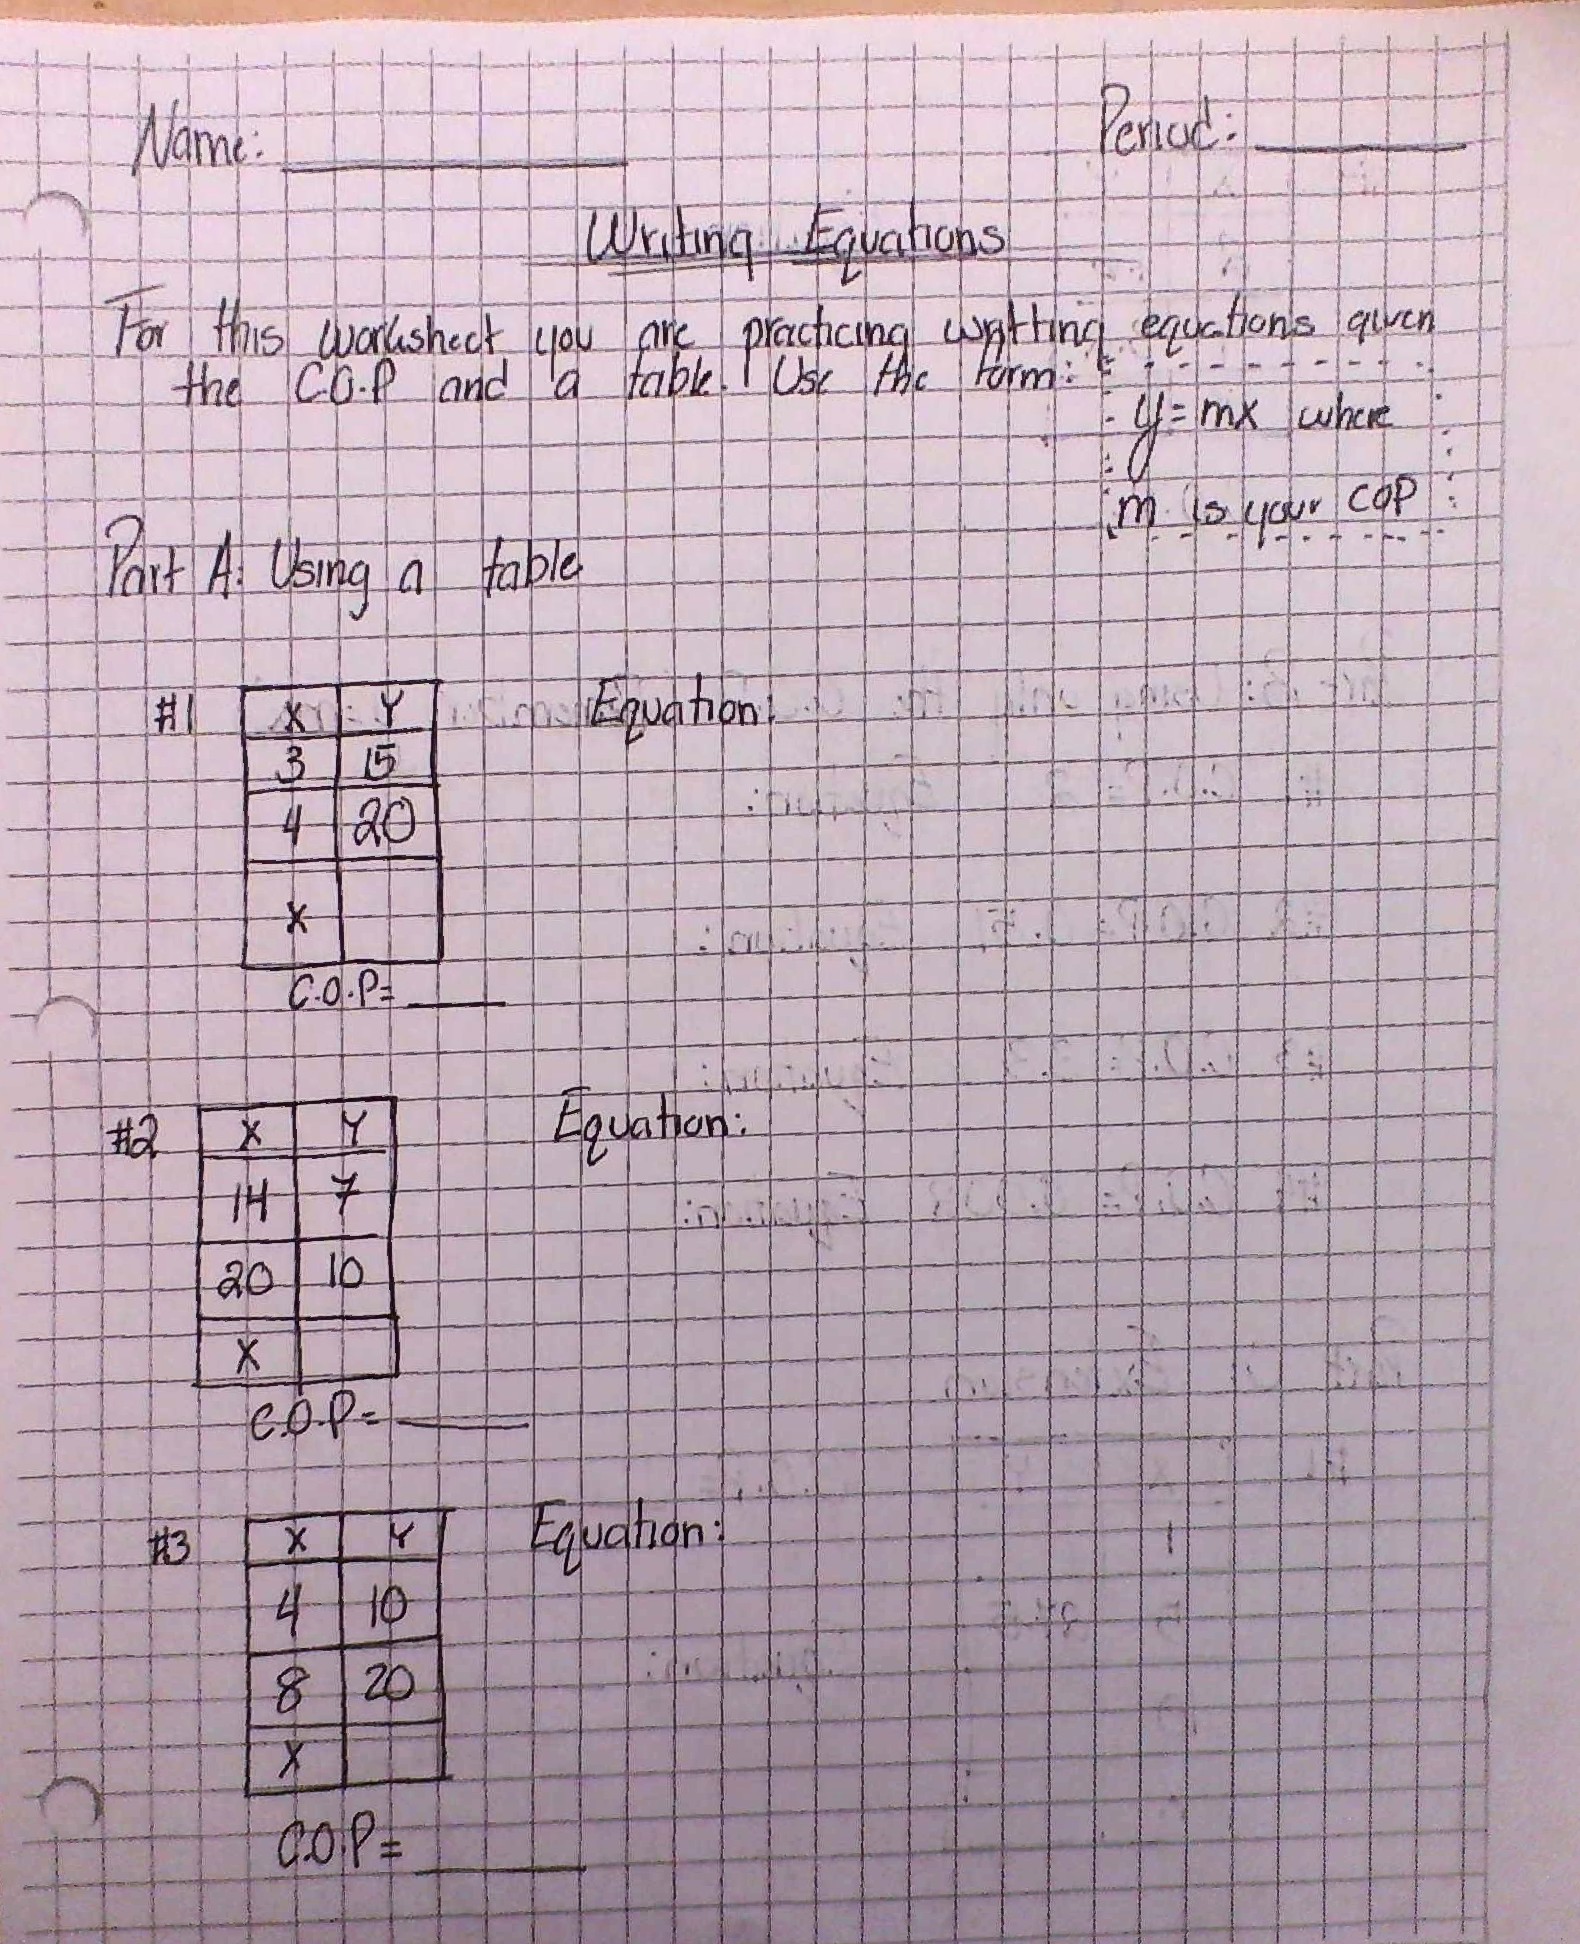 Name: ________ Period: ________
Writing Equations
For this worksheet you are practicing writting equations given
the C.O.P and a table. Use the form:
y=mx where
m is your COP
Part A: Using a table
#1 X Y Equation:
3 15
4 20
X
C.O.P= ____
#2 X Y Equation:
14 7
20 10
X
C.O.P= ____
#3 X Y Equation:
4 10
8 20
X
C.O.P= ____